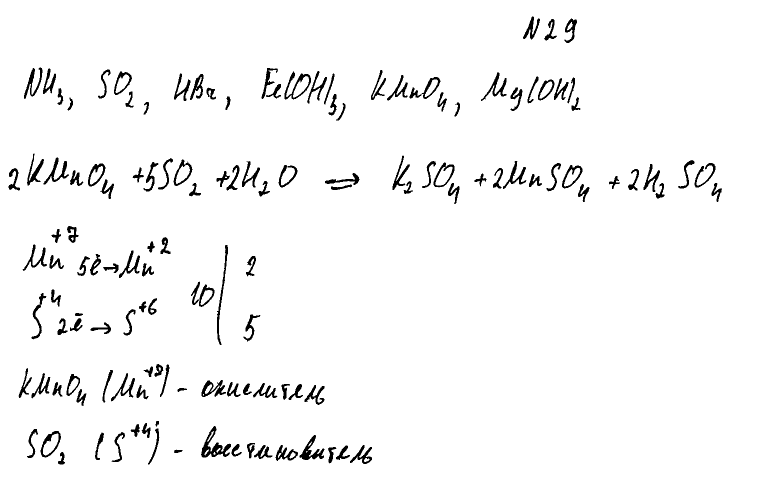 N29
NH₃, SO₂, HBr, Fe(OH)₃, KMnO₄, Mg(OH)₂
2KMnO₄ + 5SO₂ + 2H₂O ⇒ K₂SO₄ + 2MnSO₄ + 2H₂SO₄
Mn⁺⁷ 5ē → Mn⁺² 10 | 2
S⁺⁴ 2ē → S⁺⁶ | 5
KMnO₄ (Mn⁺⁷) - окислитель
SO₂ (S⁺⁴) - восстановитель